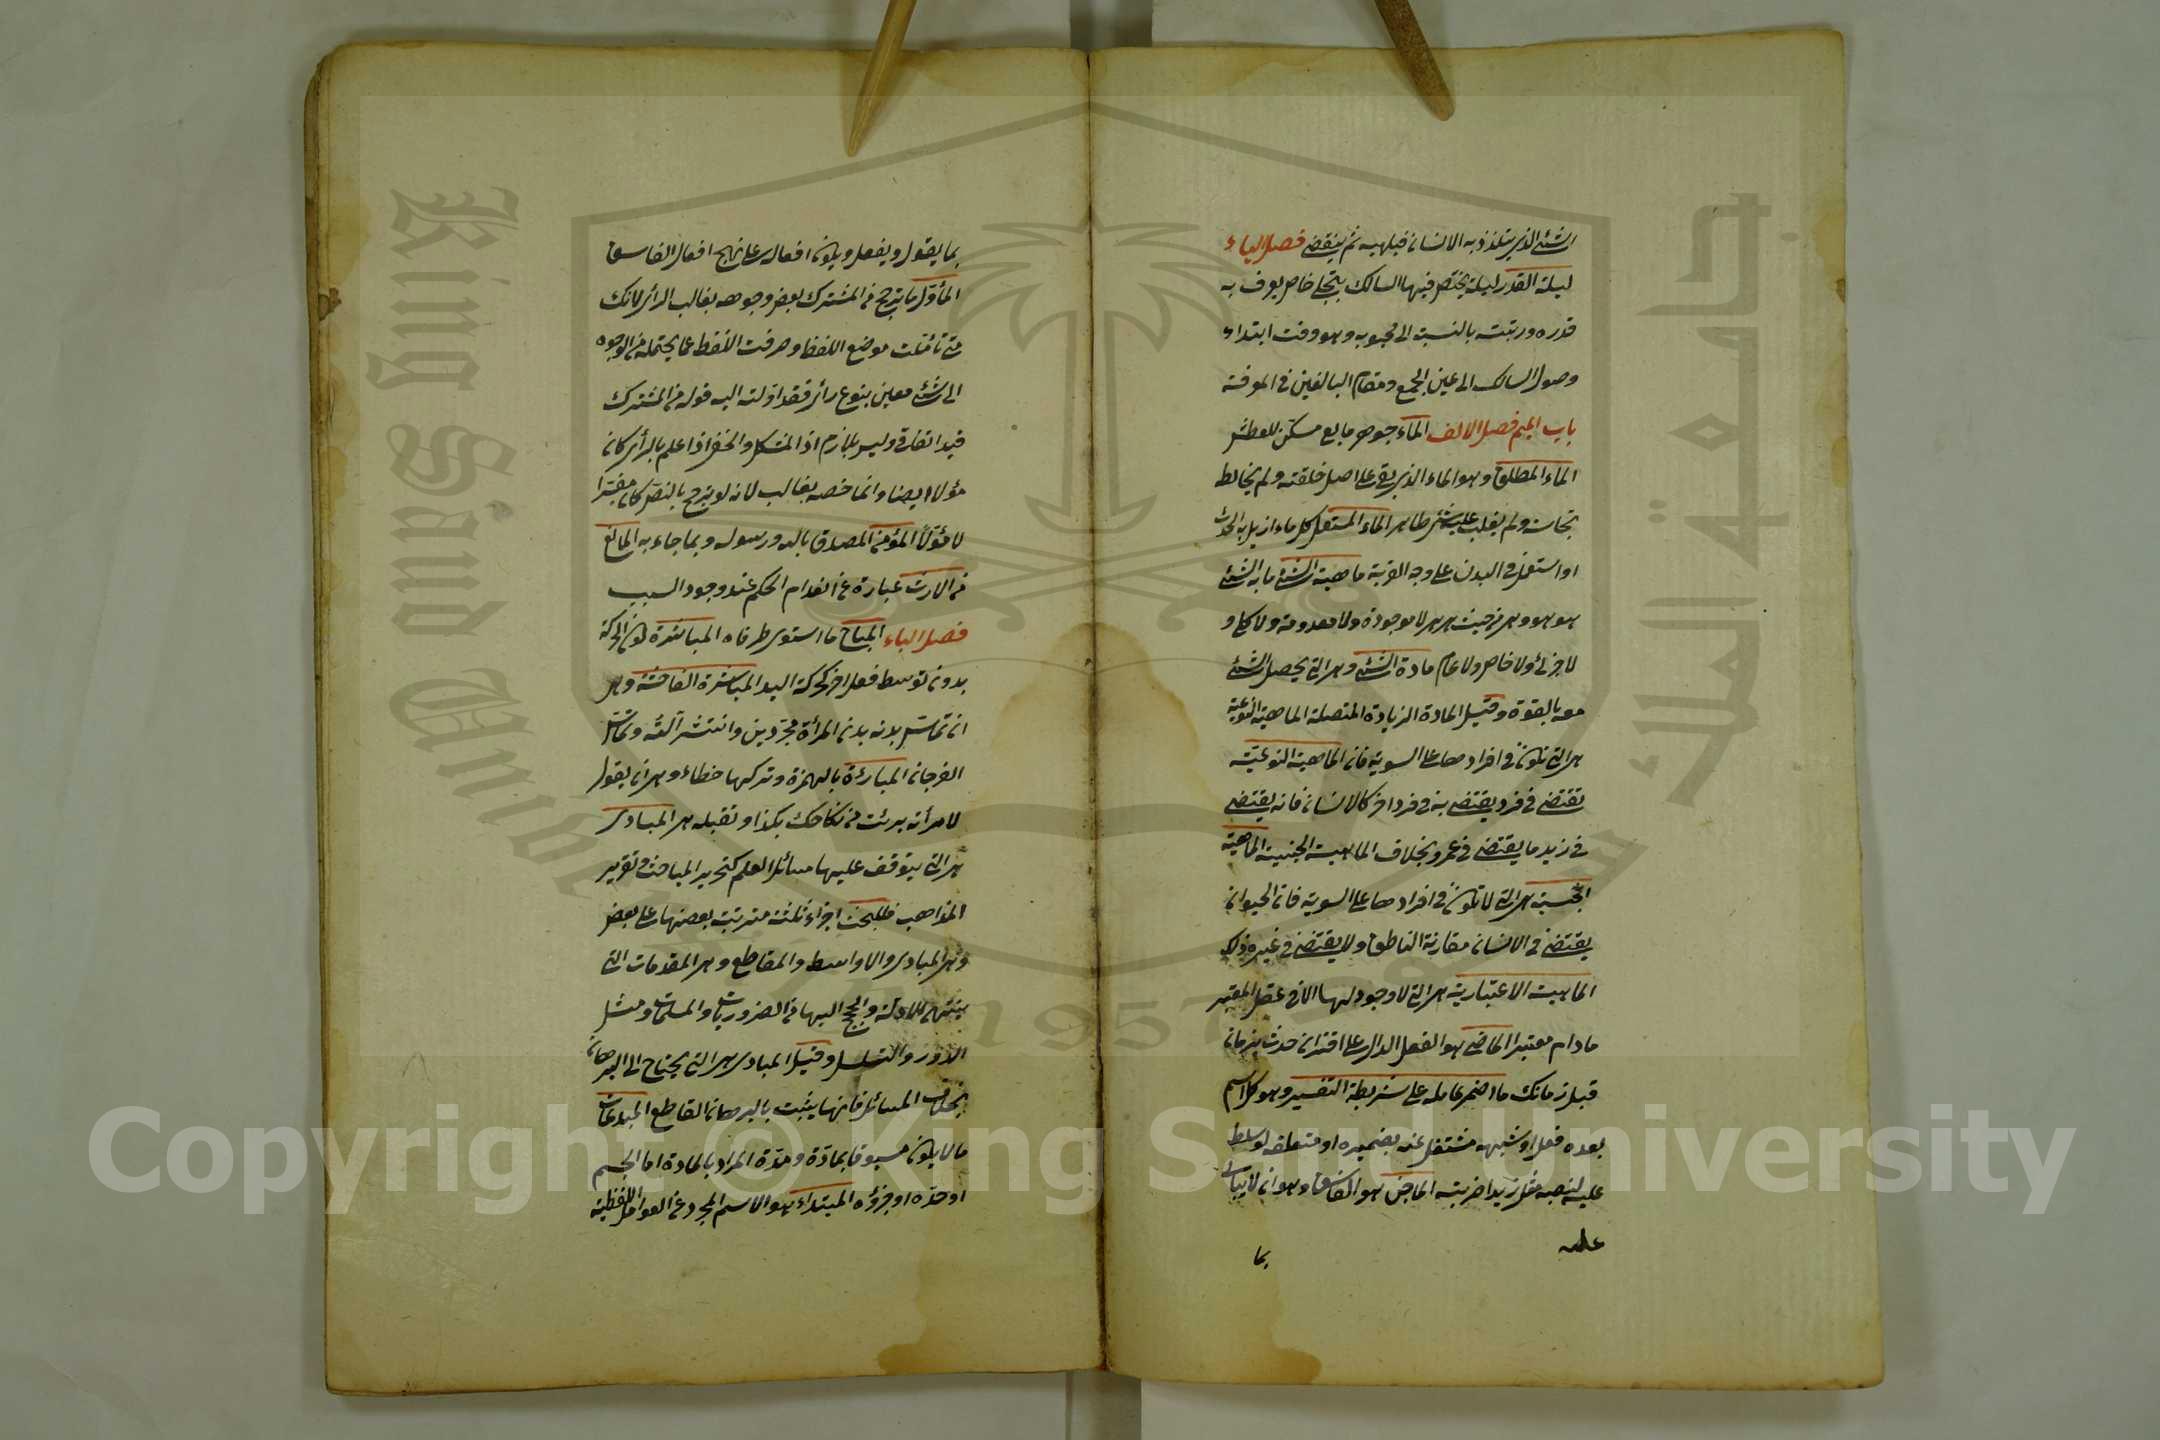 الشئ الذي يتلذذ به الانسان فيلهيه ثم ينقضي فصل الياء
ليلة القدر ليلة يختص فيها السالك بتجلي خاص يعرف به
قدره ورتبته بالنسبة الى محبوبه وهو وقت ابتداء
وصول السالك الى عين الجمع ومقام البالغين في المعرفة
باب الميم فصل الالف الماء جوهر مايع مسكن للعطش
الماء المطلق وهو الماء الذي بقي على اصل خلقته ولم يخالط
نجاسة ولم يغلب عليه شئ طاهر الماء المستعمل كل ماء ازيل به الحدث
او استعمل في البدن على وجه القربة ماهية الشئ ما به الشئ
هو هو وهي من حيث هي هي لا موجودة ولا معدومة ولا كلي و
لا جزئي ولا خاص ولا عام مادة الشئ وهي التي يحصل الشئ
معه بالقوة وقيل المادة الزيادة المتصلة الماهية النوعية
هي التي تكون في افرادها على السوية فان الماهية النوعية
تقتضي في فرد يقتضي به في فرد اخر كالانسان فانه يقتضي
في زيد ما يقتضي في عمرو بخلاف الماهية الجنسية الماهية
الجنسية هي التي لا تكون في افرادها على السوية فان الحيوان
يقتضي في الانسان مقارنة الناطق ولا يقتضي في غيره ذلك
الماهية الاعتبارية هي التي لا وجود لها الا في عقل المعتبر
مادام معتبرا الماضي هو الفعل الدال على اقتران حدث بزمان
قبل زمانك ما اضمر عامله على شريطة التفسير وهو كل اسم
بعده فعل او شبهه مشتغل عنه بضميره او متعلقه لو سلط
عليه لنصبه مثل زيدا ضربته الماجن هو الفاسق وهو ان لا يبالي
بما
بما يقول ويفعل ويكون افعاله على نهج افعال الفاسق
المأول ما يترجح من المشترك بعض وجوهه بغالب الرأي لانك
متى تأملت موضع اللفظ وصرفت اللفظ عما يحتمله من الوجوه
الى شئ معين بنوع رأي فقد اولته اليه قوله من المشترك
قيد اتفاقي وليس بلازم اذ المشكل والخفي اذا علم بالرأي كان
مؤلا ايضا وانما خصه بغالب لانه لو يترجح بالنص كان مفسرا
لا مؤولا المؤمن المصدق بالله ورسوله وبما جاء به المانع
من الارث عبارة عن انعدام الحكم عند وجود السبب
فصل الباء المباح ما استوى طرفاه المباشرة كون الحركة
بدون توسط فعل اخر كحركة اليد المباشرة الفاحشة وهي
ان تماس بدنه بدن المرأة مجردين وانتشر آلته وتماس
الفرجان المبارئة بالهمزة وتركها خطاء وهي ان يقول
لامرأته برئت من نكاحك بكذا وتقبله هي المبادي
هي التي يتوقف عليها مسائل العلم كتحرير المباحث وتقرير
المذاهب فللبحث اجزاء ثلثة مترتب بعضها على بعض
وهي المبادي والاواسط والمقاطع وهي المقدمات التي
ينتهي للادلة والحجج اليها من الضروريات والمسلمات ومثل
الدور والتسلسل وقيل المبادي هي التي يحتاج الى البرهان
بخلاف المسائل فانها يثبت بالبرهان القاطع المبدعات
ما لا يكون مسبوقا بمادة ومدة المراد بالمادة اما الجسم
او حده او جزؤه المبتداء هو الاسم المجرد عن العوامل اللفظية